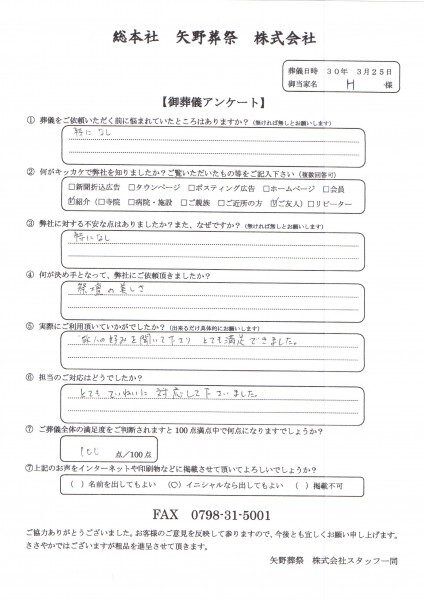 総本社 矢野葬祭 株式会社
葬儀日時 30年 3月25日
御当家名 H 様
【御葬儀アンケート】
① 葬儀をご依頼いただく前に悩まれていたところはありますか？（無ければ無しとお願いします）
特になし
② 何がキッカケで弊社を知りましたか？ご覧いただいたもの等をご記入下さい（複数回答可）
□新聞折込広告 □タウンページ □ポスティング広告 □ホームページ □会員
☑紹介（□寺院 □病院・施設 □ご親族 □ご近所の方 ☑ご友人）□リピーター
③ 弊社に対する不安な点はありましたか？また、なぜですか？（無ければ無しとお願いします）
特になし
④ 何が決め手となって、弊社にご依頼頂きましたか？
祭壇の美しさ
⑤ 実際にご利用頂いていかがでしたか？（出来るだけ具体的にお願いします）
故人の好みを聞いて下さり とても満足できました。
⑥ 担当のご対応はどうでしたか？
とても ていねいに 対応して下さいました。
⑦ ご葬儀全体の満足度をご判断されますと100点満点中で何点になりますでしょうか？
100 点/100点
⑦上記のお声をインターネットや印刷物などに掲載させて頂いてよろしいでしょうか？
（ ）名前を出してもよい （○）イニシャルなら出してもよい （ ）掲載不可
FAX 0798-31-5001
ご協力ありがとうございました。お客様のご意見を反映して参りますので、今後とも宜しくお願い申し上げます。
ささやかではございますが粗品を進呈させて頂きます。
矢野葬祭 株式会社スタッフ一同